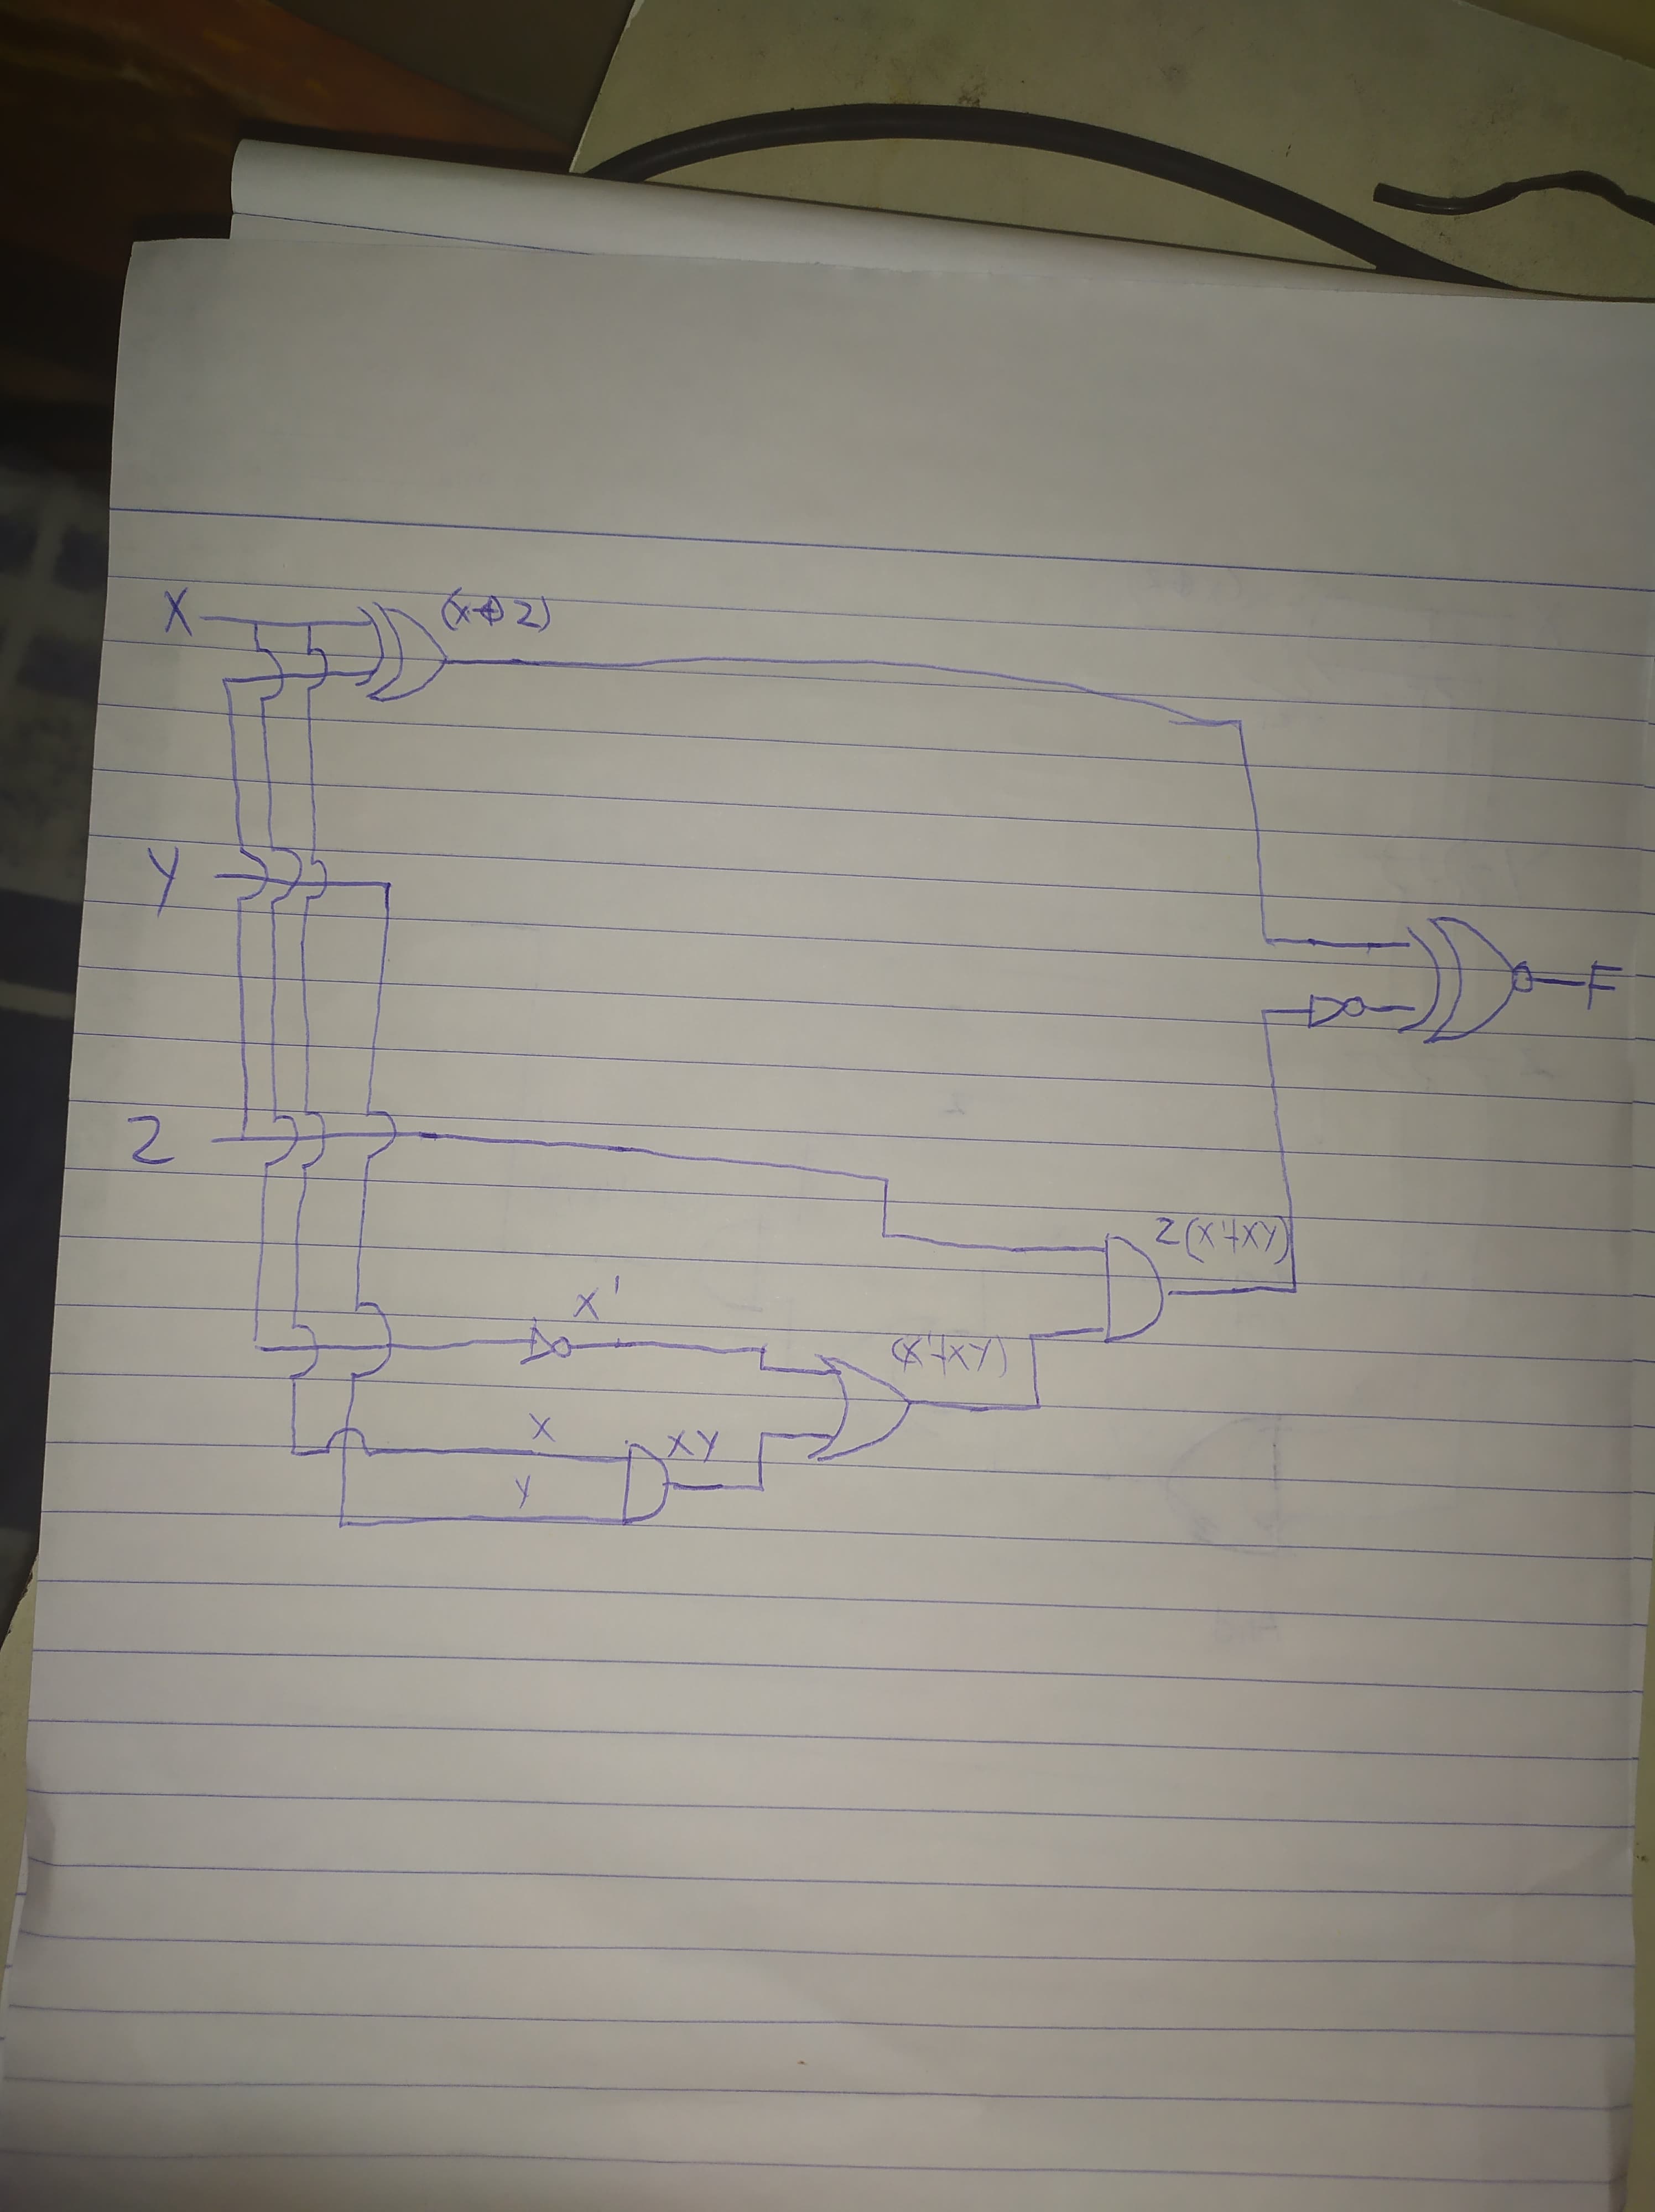 X
(x⊕z)
Y
F
Z
z(x'+xy)
x'
(x'+xy)
x
xy
y